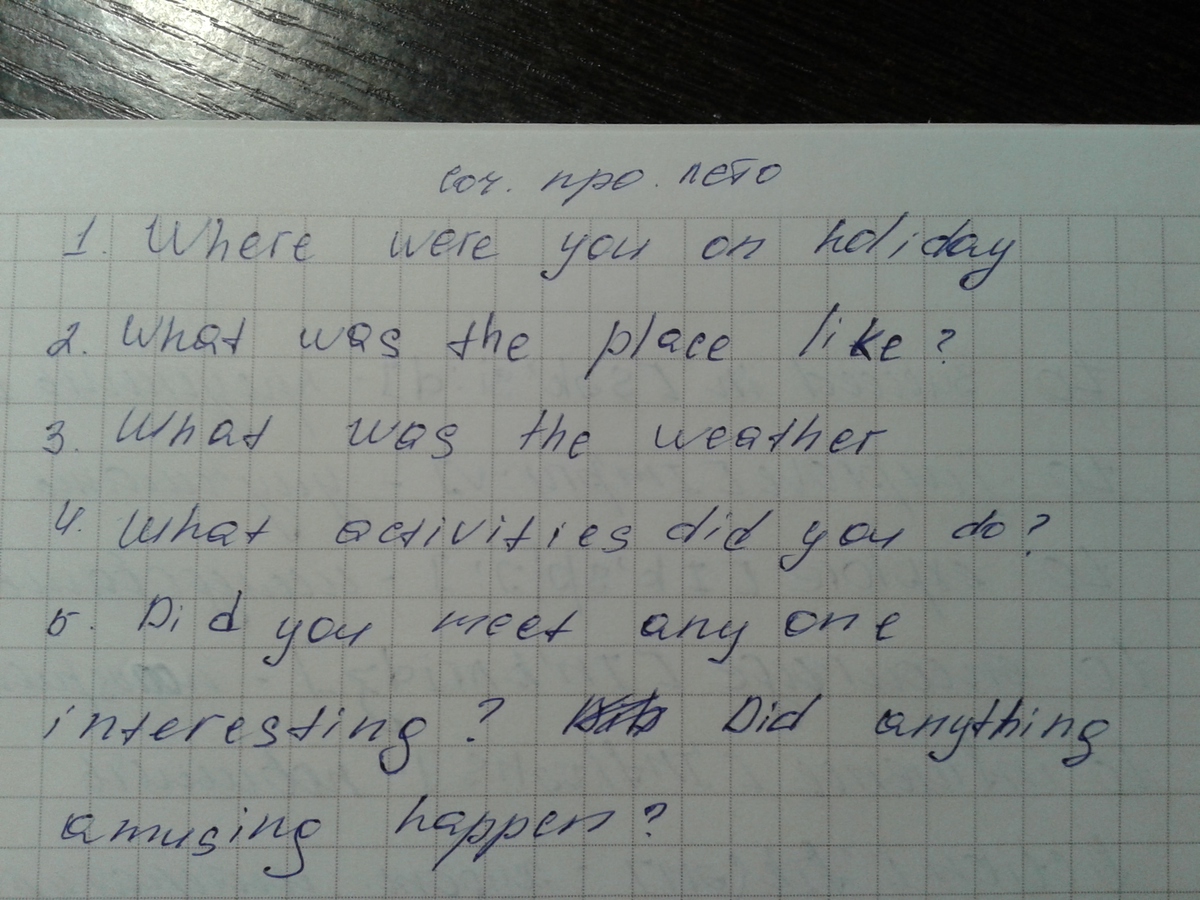 соч. про лето
1. Where were you on holiday
2. What was the place like?
3. What was the weather
4. What activities did you do?
5. Did you meet any one
interesting? Did anything
amusing happen?